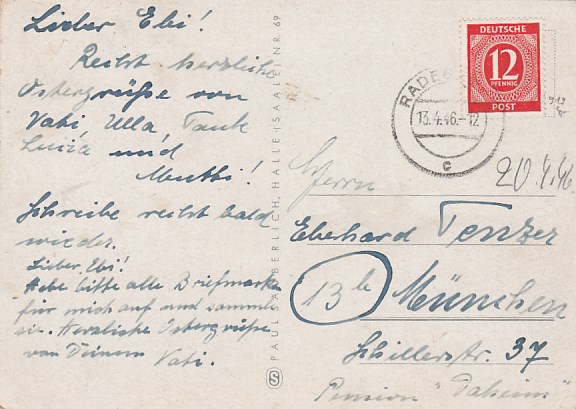 Lieber Ebi!
Recht herzliche
Ostergrüße von
Vati, Ulla Tante
Luzia und
Mutti!
Schreibe recht bald
wieder.
Lieber Ebi!
Hebe bitte alle Briefmarken
für mich auf und sammle
sie. Herzliche Ostergrüße
von Deinem
Vati.
PAUL SAALBERLICH, HALLE-SAALE NR. 69
DEUTSCHE
12
PFENNIG
POST
RADEB
13.4.46.-12
c
20.4.46.
Herrn
Eberhard Tenzer
13b München
Schillerstr. 37
Pension "Daheim"